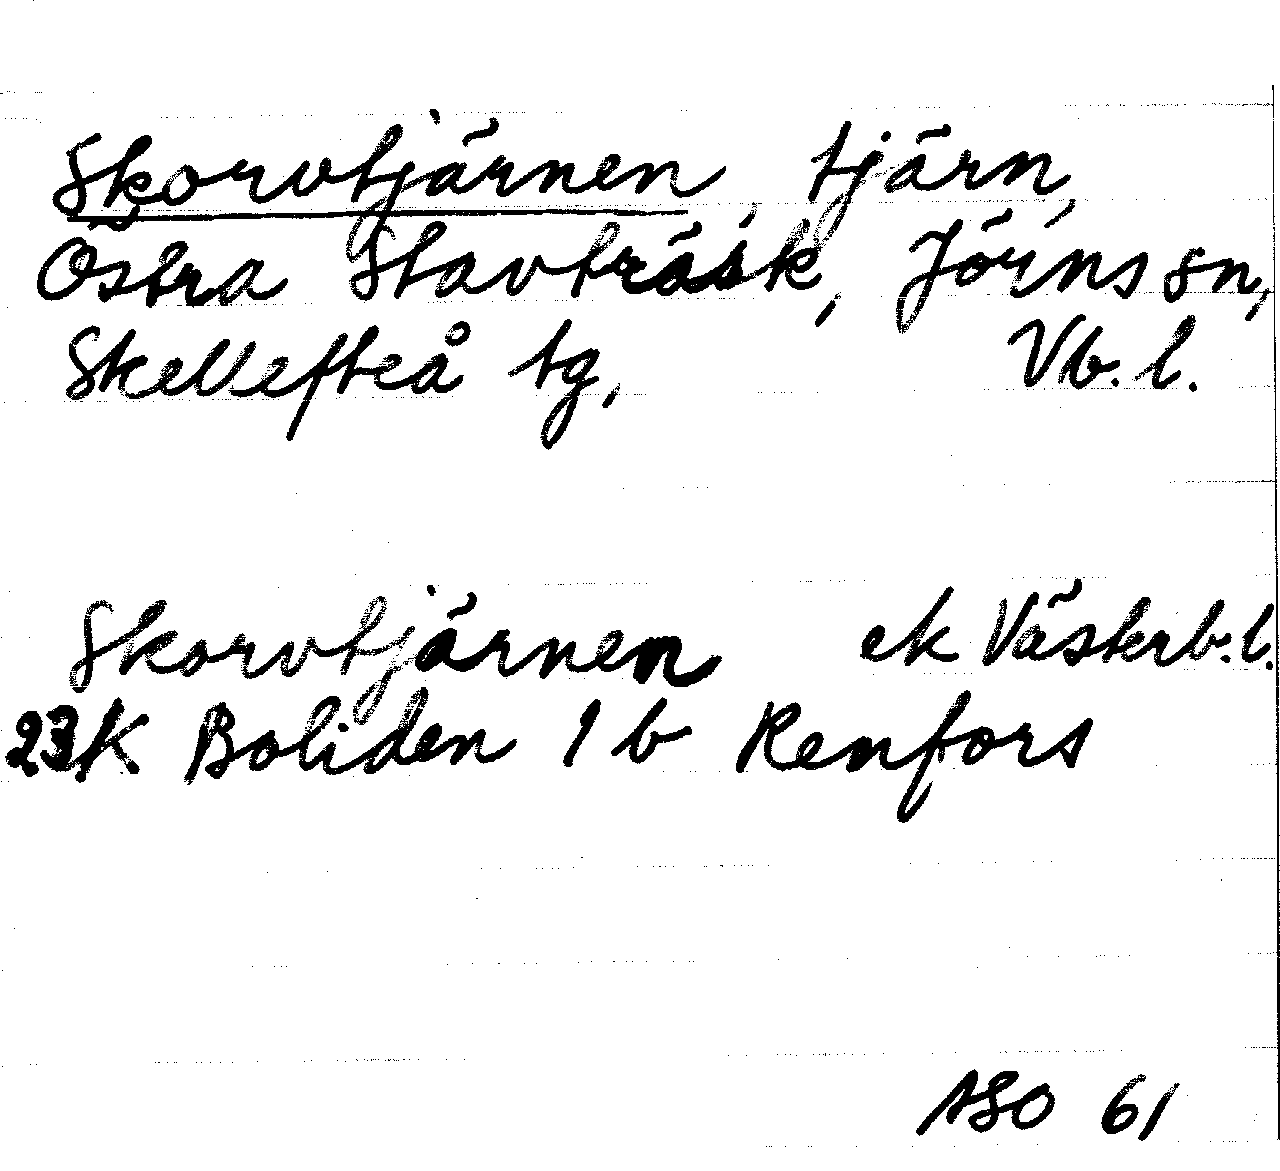 Skorvtjärnen, tjärn,
Östra Stavträsk, Jörns sn,
Skellefteå tg, Vb. l.
Skorvtjärnen ek Västerb. l.
23K Boliden 1 b Renfors
ASO 61